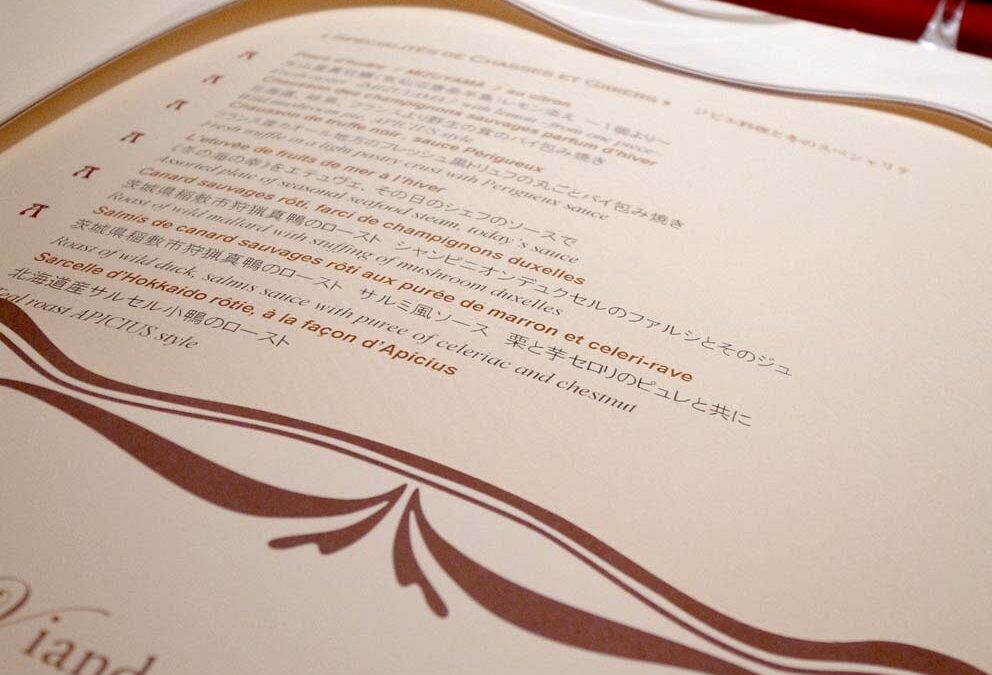 • SPÉCIALITÉS DE CHASSES ET GIBIERS • ジビエ料理と冬のスペシャリテ
MIZUYAMA au citron
レモン添え 〜1個より〜
MIZUYAMA with lemon from one piece
Chausson des champignons sauvages parfum d'hiver
フランスより野生の茸のパイ包み焼き
APICIUS style
Chausson de truffe noir, sauce Périgueux
フランス産トリュフの丸ごとパイ包み焼き
Fresh truffle in a light pastry crust with Perigueux sauce
L'etuvée de fruits de mer à l'hiver
《冬の海の幸》をエテュヴェ、その日のシェフのソースで
Assorted plate of seasonal seafood steam, today's sauce
Canard sauvages rôti, farci de champignons duxelles
茨城県稲敷市狩猟真鴨のロースト シャンピニオンデュクセルのファルシとそのジュ
Roast of wild mallard with stuffing of mushroom duxelles
Salmis de canard sauvages rôti aux purée de marron et celeri-rave
茨城県稲敷市狩猟真鴨のロースト サルミ風ソース 栗と芋セロリのピュレと共に
Roast of wild duck, salmis sauce with puree of celeriac and chestnut
Sarcelle d'Hokkaido rôtie, à la façon d'Apicius
北海道産サルセル小鴨のロースト
Teal roast APICIUS style
Viand